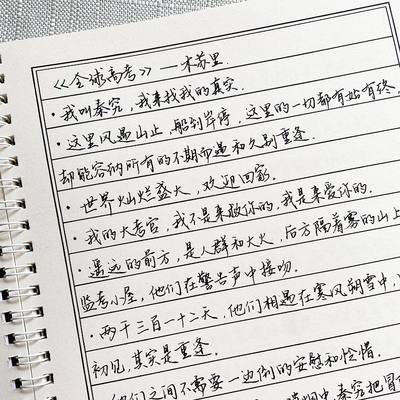 《全球高考》——木苏里.
· 我叫秦究，我来找我的真实.
· 这里风遇山止，船到岸停，这里的一切都有始有终，
却能容纳所有的不期而遇和久别重逢.
· 世界灿烂盛大，欢迎回家.
· 我的大考官，我不是来救你的，我是来爱你的.
· 遥远的前方，是人群和大火，后方隔着雾的山上
监考小屋，他们在警告声中接吻.
· 两千三百一十二天，他们相遇在寒风朔雪中，
初见，其实是重逢.
他们之间不需要一边倒的安慰和怜惜.
中，秦究把冒